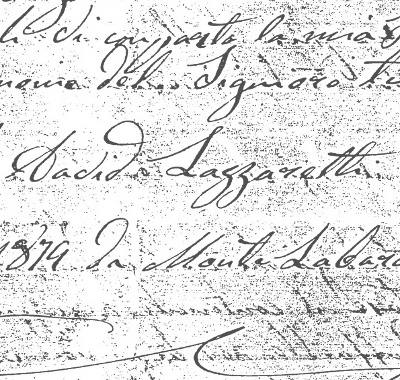 di conforto la mia
nome del Signore
David Lazzaretti
1879 Da Monte Labaro